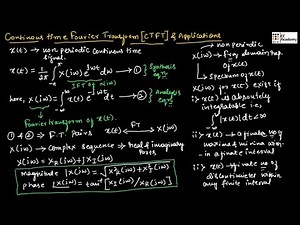 Continuous time Fourier Transform [CTFT] & Applications
x(t) → non periodic continous time
signal.
x(t) = 1/2π ∫ X(iω) e^{iωt} dω → ① } Synthesis eqn
IFT of X(iω)
here, X(iω) = ∫ x(t) e^{-iωt} dt → ② } Analysis eqn
Fourier transform of x(t).
① & ② ⇒ F.T pairs x(t) ⟷FT X(iω)
X(iω) → complex sequence → real & imaginary
parts
X(iω) = X_R(iω) + j X_I(iω)
Magnitude |X(iω)| = √(X²_R(iω) + X²_I(iω))
phase ∠X(iω) = tan⁻¹ [X_I(iω) / X_R(iω)]
non periodic
X(iω) → freq domain rep
of x(t)
→ Spectrum of x(t)
X(iω) for x(t) exist if
i> x(t) is absolutely
integrable i.e,
∫ |x(t)| dt < ∞
ii> x(t) → finite no of
maxima & minima
in a finite interval
iii> x(t) → finite no of
discontinuities within
any finite interval